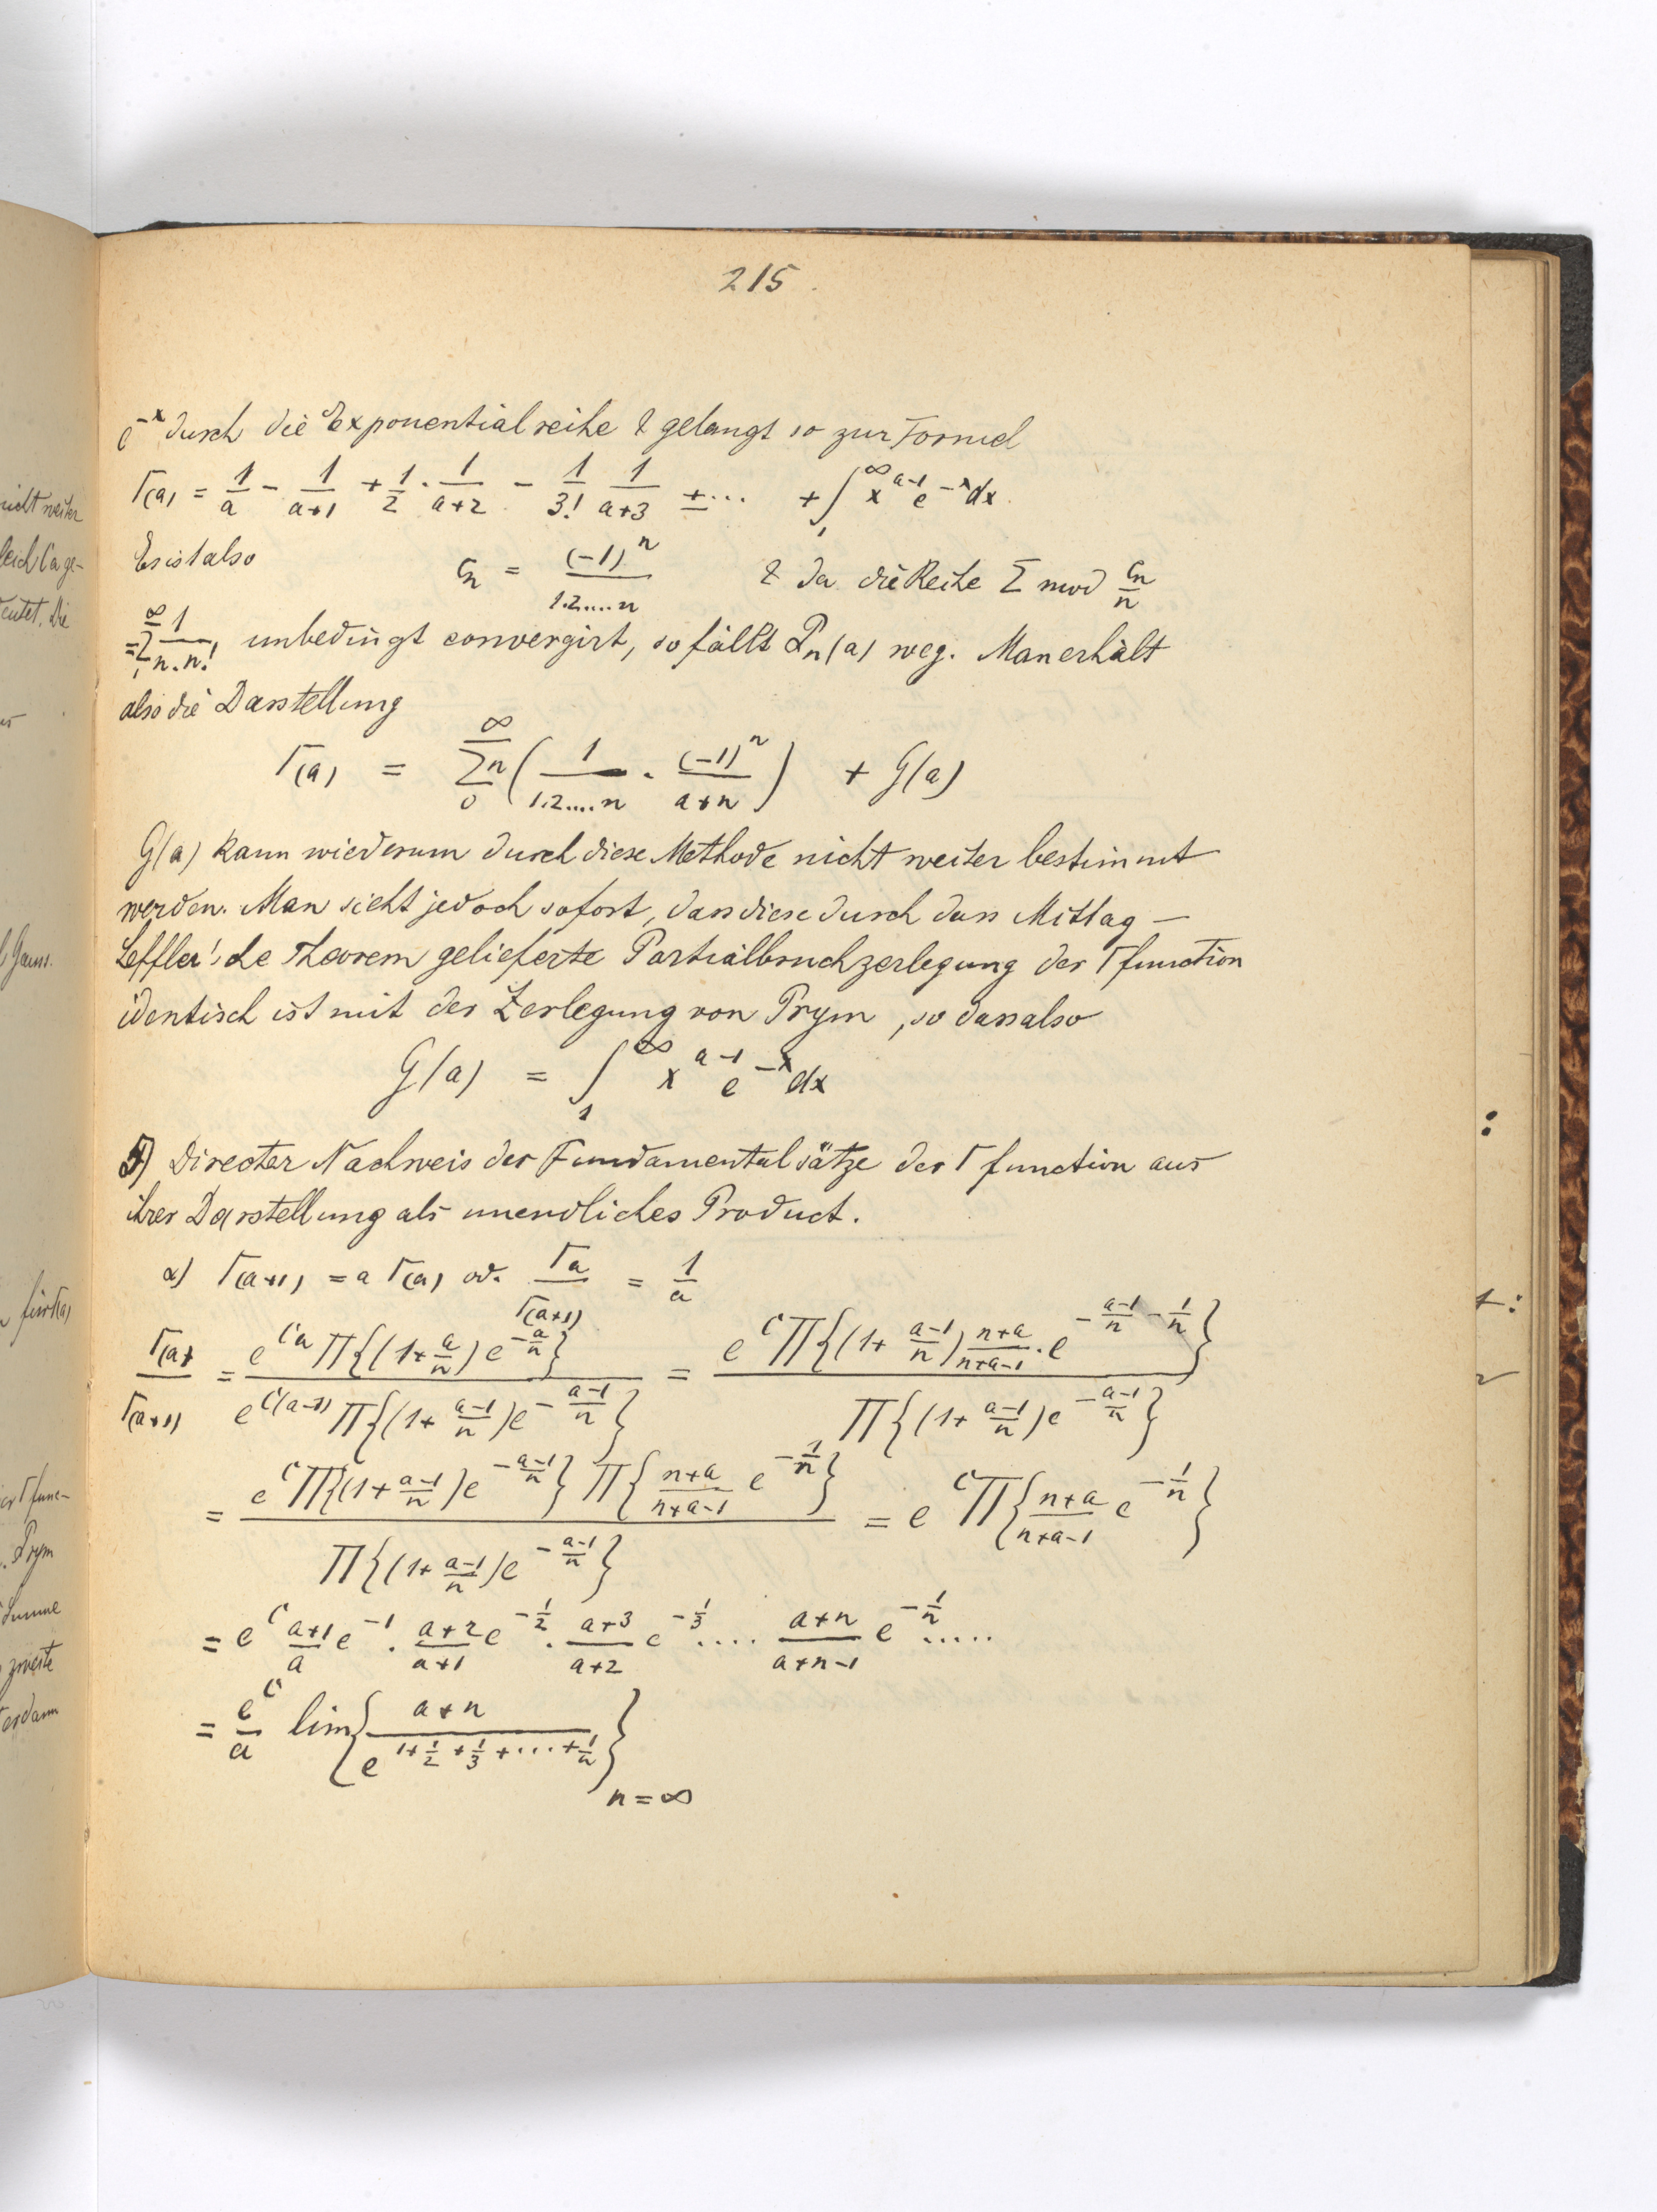 215.
e^{-x} durch die Exponentialreihe & gelangt so zur Formel
Γ(a) = 1/a - 1/(a+1) + 1/2 · 1/(a+2) - 1/3! 1/(a+3) ± ... + ∫_1^∞ x^{a-1} e^{-x} dx.
Es ist also c_n = (-1)^n / 1.2....n & da die Reihe Σ mod c_n/n
= Σ_1^∞ 1/(n.n!) unbedingt convergirt, so fällt P_n(a) weg. Man erhält
also die Darstellung
Γ(a) = Σ_0^∞ n (1/(1.2....n) · (-1)^n/(a+n)) + G(a)
G(a) kann wiederum durch diese Methode nicht weiter bestimmt
werden. Man sieht jedoch sofort, dass diese durch das Mittag-
Leffler'sche Theorem gelieferte Partialbruchzerlegung der Γfunction
identisch ist mit der Zerlegung von Prym, so dass also
G(a) = ∫_1^∞ x^{a-1} e^{-x} dx
5) Directer Nachweis der Fundamentalsätze der Γfunction aus
ihrer Darstellung als unendliches Product.
α) Γ(a+1) = a Γ(a) od. Γa/Γ(a+1) = 1/a
Γ(a)/Γ(a+1) = e^{Ca} Π{(1+a/n) e^{-a/n}} / e^{C(a-1)} Π{(1+(a-1)/n) e^{-(a-1)/n}} = e^C Π{(1+(a-1)/n) (n+a)/(n+a-1) · e^{-(a-1)/n - 1/n}} / Π{(1+(a-1)/n) e^{-(a-1)/n}}
= e^C Π{(1+(a-1)/n) e^{-(a-1)/n}} Π{(n+a)/(n+a-1) e^{-1/n}} / Π{(1+(a-1)/n) e^{-(a-1)/n}} = e^C Π{(n+a)/(n+a-1) e^{-1/n}}
= e^C (a+1)/a e^{-1} · (a+2)/(a+1) e^{-1/2} · (a+3)/(a+2) e^{-1/3} .... (a+n)/(a+n-1) e^{-1/n} .....
= e^C/a lim{(a+n) / e^{1+1/2+1/3+...+1/n}}_{n=∞}